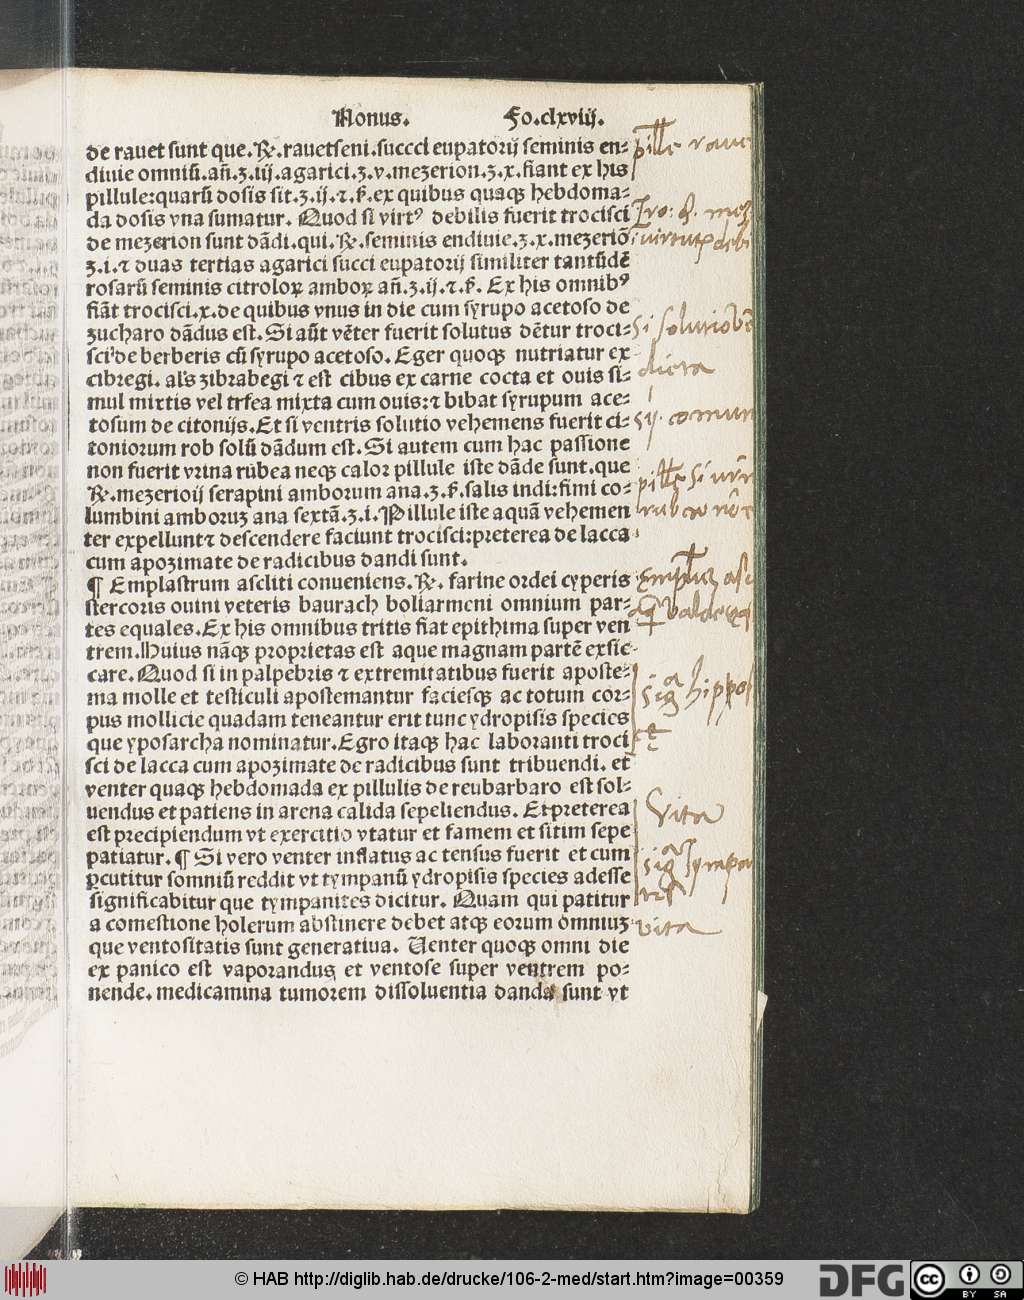 Nonus. Fo.clxviij.
de rauet sunt que.℞.rauetseni.succi eupatorij seminis en-
diuie omniũ.añ.ʒ.iij.agarici.ʒ.v.mezerion.ʒ.x.fiant ex his
pillule:quarũ dosis sit.ʒ.ij.⁊.ß.ex quibus quaqꝫ hebdoma-
da dosis vna sumatur. Quod si virtꝰ debilis fuerit trocisci
de mezerion sunt dãdi.qui.℞.seminis endiuie.ʒ.x.mezeriõ
ʒ.i.⁊ duas tertias agarici succi eupatorij similiter tantũdẽ
rosarũ seminis citroloꝝ amboꝝ añ.ʒ.ij.⁊.ß. Ex his omnibꝰ
fiãt trocisci.x.de quibus vnus in die cum syrupo acetoso de
zucharo dãdus est. Si aũt vẽter fuerit solutus dẽtur troci-
sci de berberis cũ syrupo acetoso. Eger quoqꝫ nutriatur ex
cibregi. als zibrabegi ⁊ est cibus ex carne cocta et ouis si-
mul mixtis vel trfea mixta cum ouis:⁊ bibat syrupum ace-
tosum de citonijs. Et si ventris solutio vehemens fuerit ci-
toniorum rob solũ dãdum est. Si autem cum hac passione
non fuerit vrina rubea neqꝫ calor pillule iste dãde sunt.que
℞.mezerioij serapini amborum ana.ʒ.ß.salis indi:fimi co-
lumbini amboruꝫ ana sextã.ʒ.i. Pillule iste aquã vehemen
ter expellunt⁊ descendere faciunt trocisci:preterea de lacca
cum apozimate de radicibus dandi sunt.
¶ Emplastrum ascliti conueniens.℞. farine ordei cyperis
stercoris ouini veteris baurach boliarmeni omnium par-
tes equales. Ex his omnibus tritis fiat epithima super ven
trem. Huius nãqꝫ proprietas est aque magnam partẽ exsic
care. Quod si in palpebris ⁊ extremitatibus fuerit aposte-
ma molle et testiculi apostemantur faciesqꝫ ac totum cor-
pus mollicie quadam teneantur erit tunc ydropisis species
que yposarcha nominatur. Egro itaqꝫ hac laboranti troci
sci de lacca cum apozimate de radicibus sunt tribuendi. et
venter quaqꝫ hebdomada ex pillulis de reubarbaro est sol-
uendus et patiens in arena calida sepeliendus. Et preterea
est precipiendum vt exercitio vtatur et famem et sitim sepe
patiatur. ¶ Si vero venter inflatus ac tensus fuerit et cum
ꝑcutitur somniũ reddit vt tympanũ ydropisis species adesse
significabitur que tympanites dicitur. Quam qui patitur
a comestione holerum abstinere debet atqꝫ eorum omniuꝫ
que ventositatis sunt generatiua. Uenter quoqꝫ omni die
ex panico est vaporandus et ventose super ventrem po-
nende. medicamina tumorem dissoluentia danda sunt vt
pille raue
Si solutio
dieta
Sy. comun
pille si
vita
vita
© HAB http://diglib.hab.de/drucke/106-2-med/start.htm?image=00359
DFG
cc
BY SA